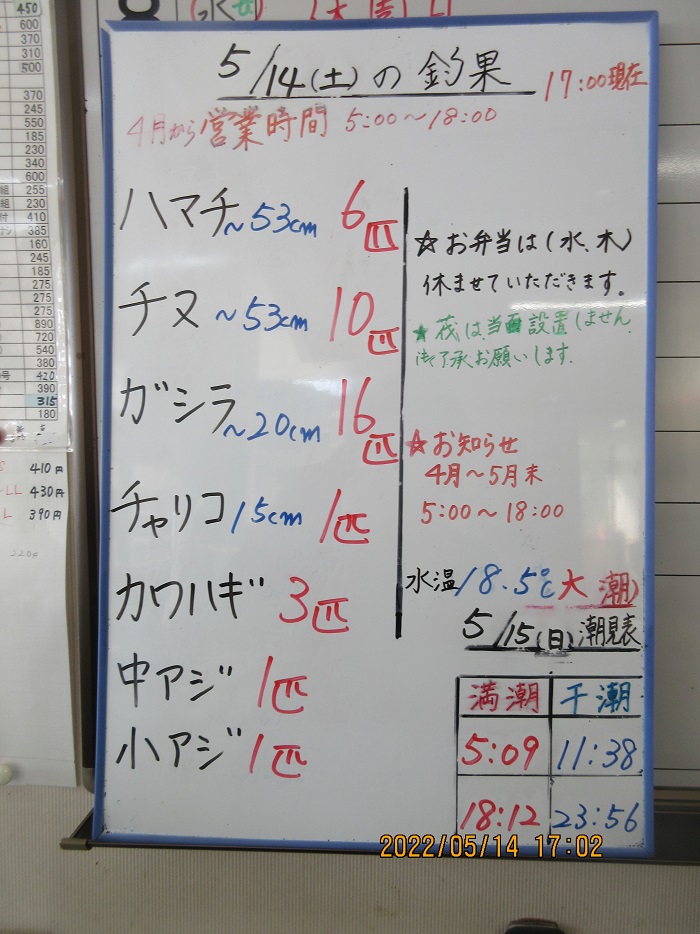 5/14(土)の釣果
17:00現在
4月から営業時間 5:00~18:00
ハマチ~53cm 6匹
チヌ~53cm 10匹
ガシラ~20cm 16匹
チャリコ15cm 1匹
カワハギ 3匹
中アジ 1匹
小アジ 1匹
☆お弁当は(水、木)
休ませていただきます。
★筏は当面設置しません
御了承お願いします。
☆お知らせ
4月~5月末
5:00~18:00
水温18.5℃大潮)
5/15(日)潮見表
満潮 干潮
5:09 11:38
18:12 23:56
2022/05/14 17:02
450
600
370
310
500
370
245
550
185
230
340
600
組 255
組 230
付 410
385
160
245
185
275
275
275
890
720
540
380
号 420
390
315
180
S 410円
LL 430円
L 390円